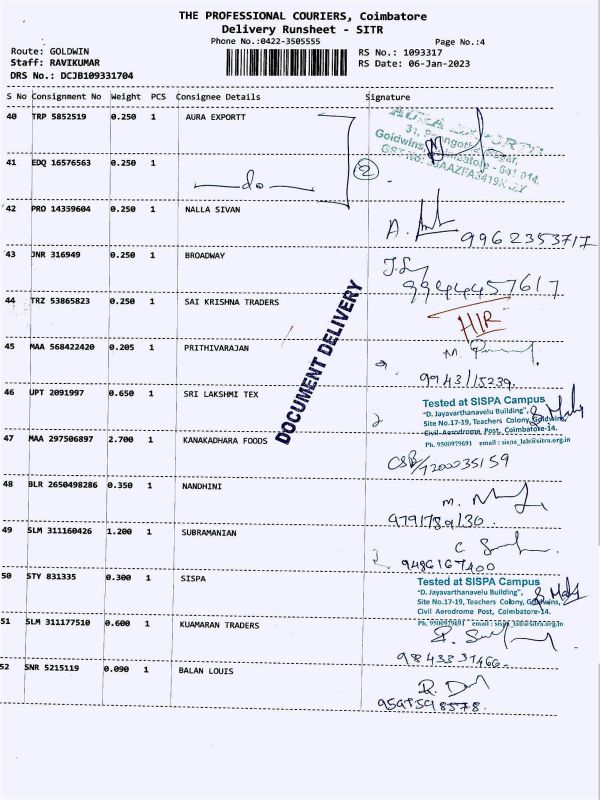 THE PROFESSIONAL COURIERS, Coimbatore
Delivery Runsheet - SITR
Phone No.:0422-3505555
Page No.:4
Route: GOLDWIN
RS No.: 1093317
Staff: RAVIKUMAR
RS Date: 06-Jan-2023
DRS No.: DCJB109331704
S No Consignment No Weight PCS Consignee Details Signature
40 TRP 5852519 0.250 1 AURA EXPORTT
AURA EXPORTS
Goldwins,
41 EDQ 16576563 0.250 1 do
2
42 PRO 14359604 0.250 1 NALLA SIVAN
9962353717
43 JNR 316949 0.250 1 BROADWAY
9944457617
44 TRZ 53865823 0.250 1 SAI KRISHNA TRADERS
HIR
DOCUMENT DELIVERY
45 MAA 568422420 0.205 1 PRITHIVARAJAN
9943115239
46 UPT 2091997 0.650 1 SRI LAKSHMI TEX
Tested at SISPA Campus
"D. Jayavarthanavelu Building",
Site No.17-19, Teachers Colony, Goldwins,
Civil Aerodrome Post, Coimbatore-14.
Ph. 9500979691 email : sispa_lab@sitra.org.in
47 MAA 297506897 2.700 1 KANAKADHARA FOODS
CSB/7200035159
48 BLR 2650498286 0.350 1 NANDHINI
9791789130
49 SLM 311160426 1.200 1 SUBRAMANIAN
9486167400
50 STY 831335 0.300 1 SISPA
Tested at SISPA Campus
"D. Jayavarthanavelu Building",
Site No.17-19, Teachers Colony, Goldwins,
Civil Aerodrome Post, Coimbatore-14.
Ph. 9500979691 email : sispa_lab@sitra.org.in
51 SLM 311177510 0.600 1 KUAMARAN TRADERS
9843331466
52 SNR 5215119 0.090 1 BALAN LOUIS
9597598578